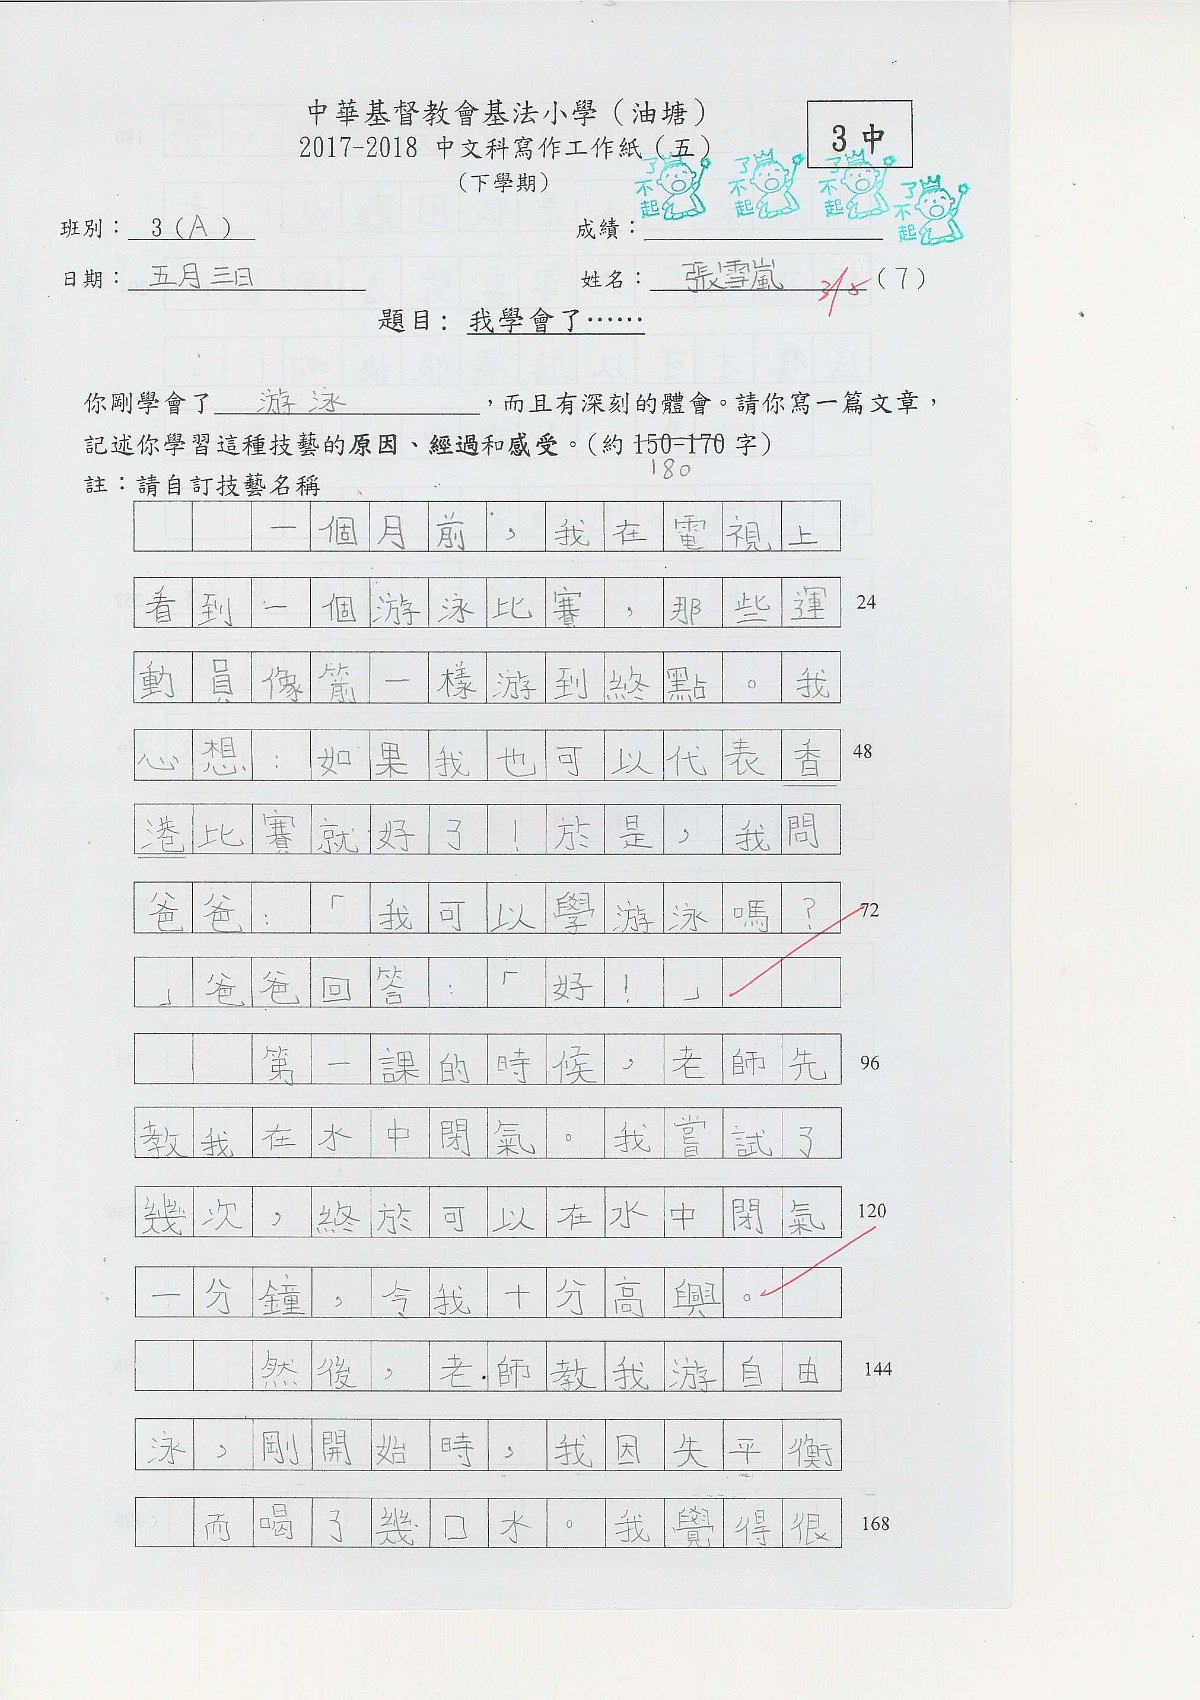 中華基督教會基法小學（油塘）
2017-2018 中文科寫作工作紙（五）
（下學期）
3中
了不起
了不起
了不起
了不起
班別：3（A）
成績：
日期：五月三日
姓名：張雪嵐（7）
3/5
題目：我學會了……
你剛學會了游泳，而且有深刻的體會。請你寫一篇文章，
記述你學習這種技藝的原因、經過和感受。（約150-170字）
180
註：請自訂技藝名稱
一個月前，我在電視上
看到一個游泳比賽，那些運 24
動員像箭一樣游到終點。我
心想：如果我也可以代表香 48
港比賽就好了！於是，我問
爸爸：「我可以學游泳嗎？ 72
」爸爸回答：「好！」
第一課的時候，老師先 96
教我在水中閉氣。我嘗試了
幾次，終於可以在水中閉氣 120
一分鐘，令我十分高興。
然後，老師教我游自由 144
泳，剛開始時，我因失平衡
，而喝了幾口水。我覺得很 168